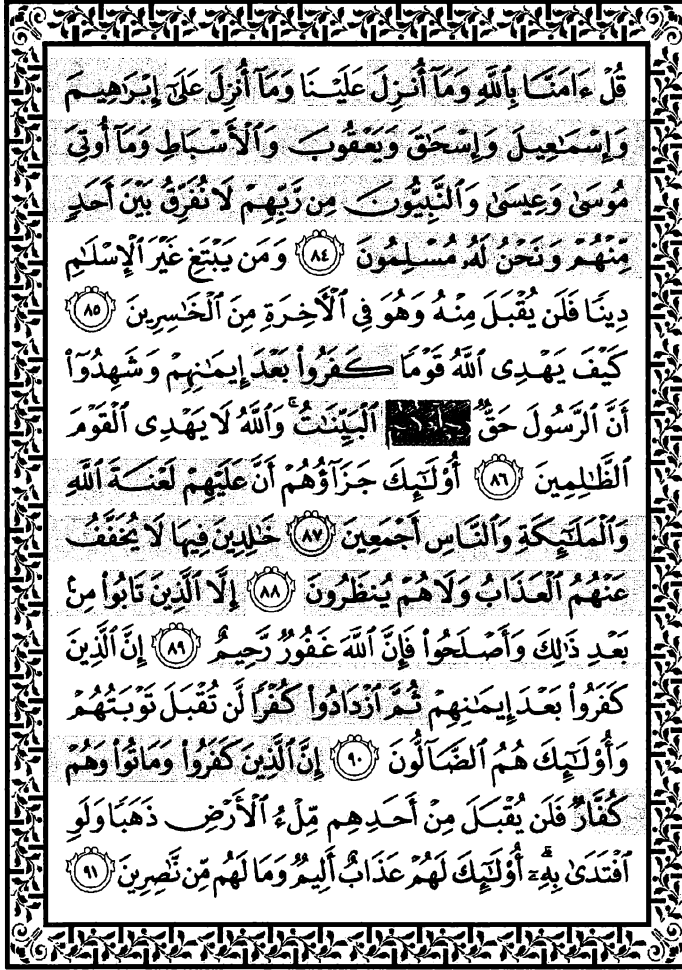 قُلْ ءَامَنَّا بِٱللَّهِ وَمَآ أُنزِلَ عَلَيْنَا وَمَآ أُنزِلَ عَلَىٰٓ إِبْرَٰهِيمَ
وَإِسْمَٰعِيلَ وَإِسْحَٰقَ وَيَعْقُوبَ وَٱلْأَسْبَاطِ وَمَآ أُوتِىَ
مُوسَىٰ وَعِيسَىٰ وَٱلنَّبِيُّونَ مِن رَّبِّهِمْ لَا نُفَرِّقُ بَيْنَ أَحَدٍ
مِّنْهُمْ وَنَحْنُ لَهُۥ مُسْلِمُونَ ٨٤ وَمَن يَبْتَغِ غَيْرَ ٱلْإِسْلَٰمِ
دِينًا فَلَن يُقْبَلَ مِنْهُ وَهُوَ فِى ٱلْأَخِرَةِ مِنَ ٱلْخَٰسِرِينَ ٨٥
كَيْفَ يَهْدِى ٱللَّهُ قَوْمًا كَفَرُوا۟ بَعْدَ إِيمَٰنِهِمْ وَشَهِدُوٓا۟
أَنَّ ٱلرَّسُولَ حَقٌّ ٱلْبَيِّنَٰتُ ۚ وَٱللَّهُ لَا يَهْدِى ٱلْقَوْمَ
ٱلظَّٰلِمِينَ ٨٦ أُو۟لَٰٓئِكَ جَزَآؤُهُمْ أَنَّ عَلَيْهِمْ لَعْنَةَ ٱللَّهِ
وَٱلْمَلَٰٓئِكَةِ وَٱلنَّاسِ أَجْمَعِينَ ٨٧ خَٰلِدِينَ فِيهَا لَا يُخَفَّفُ
عَنْهُمُ ٱلْعَذَابُ وَلَا هُمْ يُنظَرُونَ ٨٨ إِلَّا ٱلَّذِينَ تَابُوا۟ مِنۢ
بَعْدِ ذَٰلِكَ وَأَصْلَحُوا۟ فَإِنَّ ٱللَّهَ غَفُورٌ رَّحِيمٌ ٨٩ إِنَّ ٱلَّذِينَ
كَفَرُوا۟ بَعْدَ إِيمَٰنِهِمْ ثُمَّ ٱزْدَادُوا۟ كُفْرًا لَّن تُقْبَلَ تَوْبَتُهُمْ
وَأُو۟لَٰٓئِكَ هُمُ ٱلضَّآلُّونَ ٩٠ إِنَّ ٱلَّذِينَ كَفَرُوا۟ وَمَاتُوا۟ وَهُمْ
كُفَّارٌ فَلَن يُقْبَلَ مِنْ أَحَدِهِم مِّلْءُ ٱلْأَرْضِ ذَهَبًا وَلَوِ
ٱفْتَدَىٰ بِهِۦٓ ۗ أُو۟لَٰٓئِكَ لَهُمْ عَذَابٌ أَلِيمٌ وَمَا لَهُم مِّن نَّٰصِرِينَ ٩١